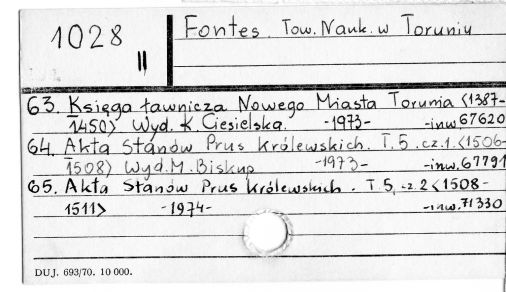 1028 Fontes. Tow. Nauk. w Toruniu
II
63. Księga ławnicza Nowego Miasta Torunia <1387-
1450> Wyd. K. Ciesielska. -1973- -inw 67620
64. Akta Stanów Prus Królewskich. T. 5. cz. 1. <1506-
1508> Wyd. M. Biskup -1973- -inw. 67791
65. Akta Stanów Prus Królewskich. T. 5, cz. 2 <1508-
1511> -1974- -inw. 71330
DUJ. 693/70. 10 000.